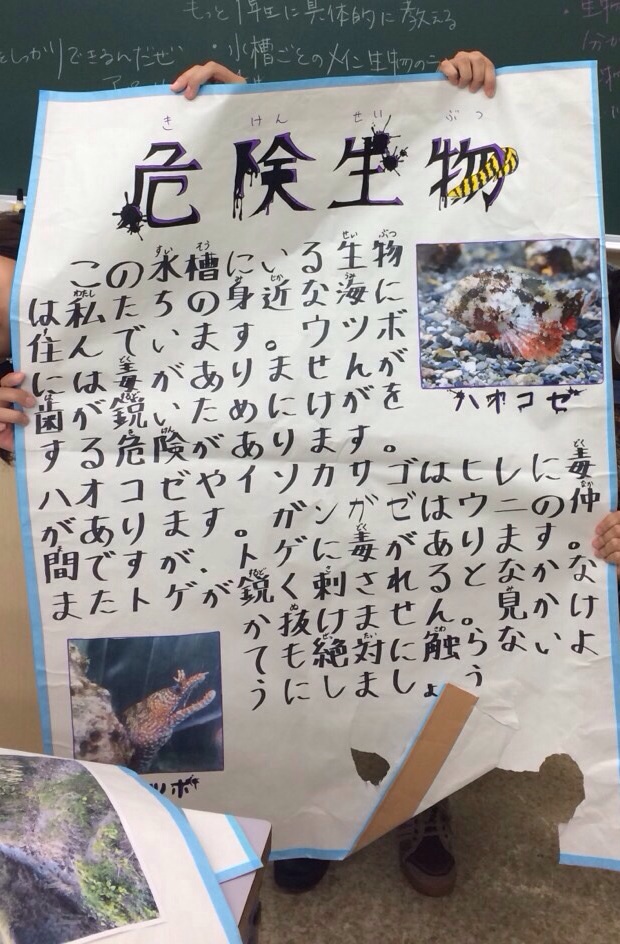 もっと1年生に具体的に教える
をしっかりできるんだぜ
・水槽ごとのメイン生物の
きけんせいぶつ
危険生物
この水槽にいる生物
は私たちの身近な海に
住んでいます。ウツボ
には毒がありませんが
歯が鋭いためにけがを
する危険があります。
ハオコゼやイソカサゴはヒレに毒
があります。ガンガゼはウニの仲
間ですが、トゲに毒があります。
またトゲが鋭く刺されるとなかな
か抜けません。見かけ
ても絶対に触らないよ
うにしましょう
ハオコゼ
ツボ